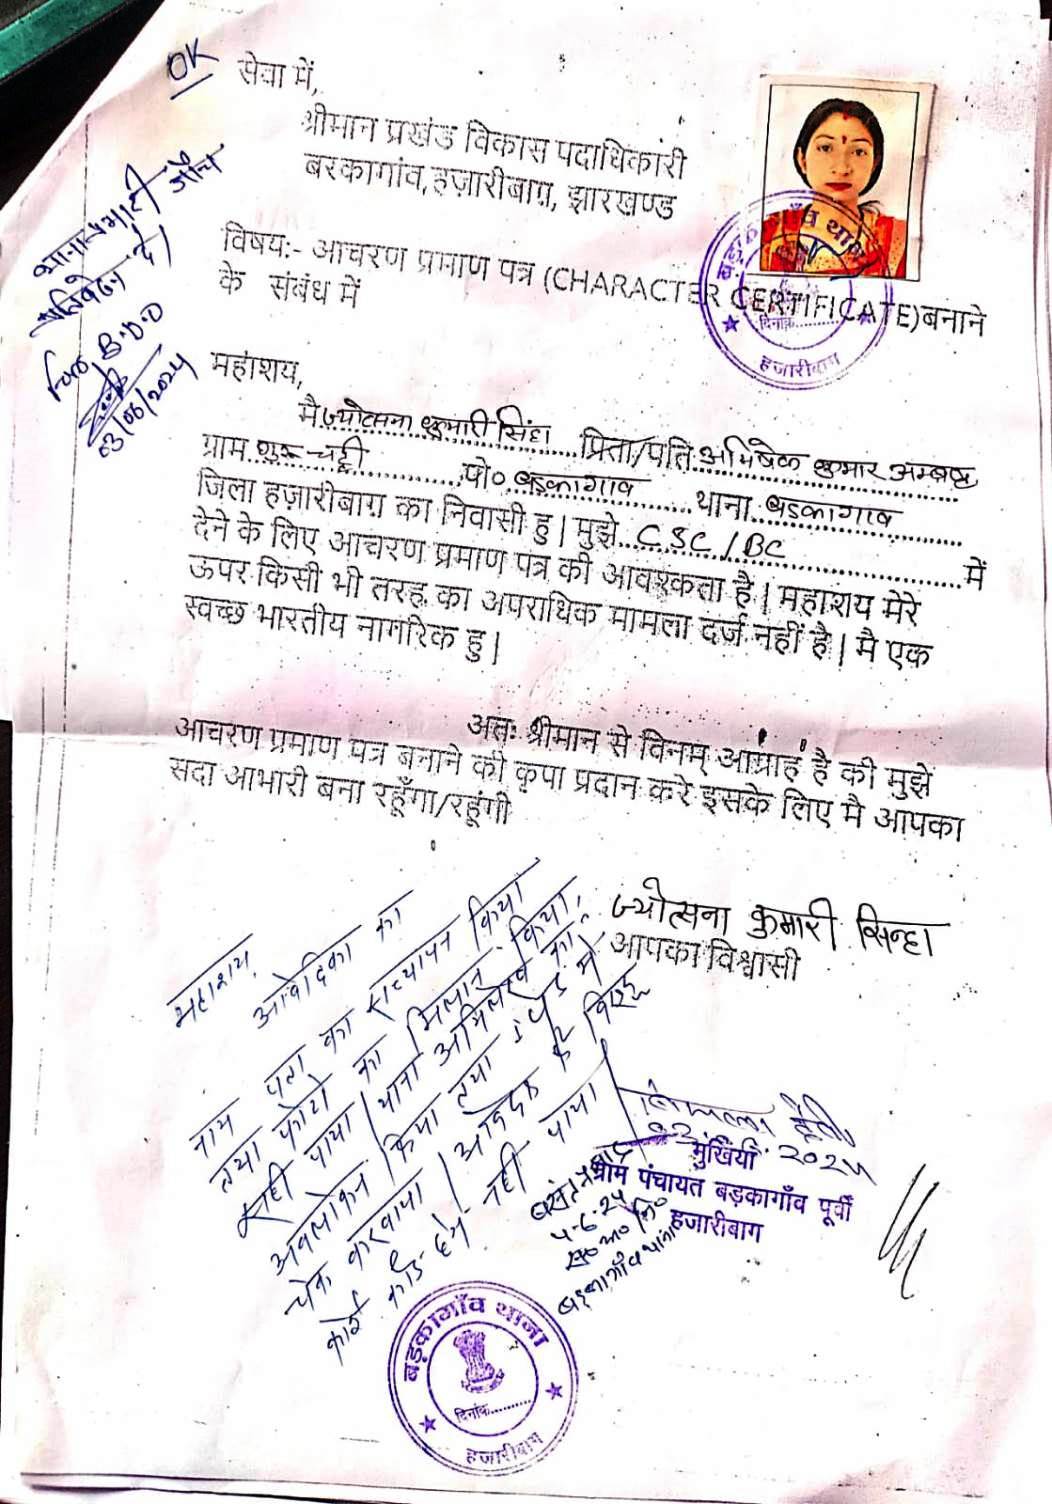 OK
सेवा में,
श्रीमान प्रखंड विकास पदाधिकारी
बरकागांव, हज़ारीबाग़, झारखण्ड
थाना प्रभारी जाँच
प्रतिवेदन दें।
B.D.O
03/06/2024
विषय:- आचरण प्रमाण पत्र (CHARACTER CERTIFICATE)बनाने
के संबंध में
दिनांक..........
हजारीबाग
महाशय,
मै ज्योत्सना कुमारी सिंहा प्रिता/पति अभिषेक कुमार अम्बष्ठ
ग्राम शुक-चट्टी पो० बड़कागाव थाना बड़कागाव
जिला हज़ारीबाग़ का निवासी हु | मुझे CSC/BC में
देने के लिए आचरण प्रमाण पत्र की आवश्कता है | महाशय मेरे
ऊपर किसी भी तरह का अपराधिक मामला दर्ज नहीं है | मै एक
स्वच्छ भारतीय नागरिक हु |
अतः श्रीमान से विनम् आग्राह है की मुझे
आचरण प्रमाण पत्र बनाने की कृपा प्रदान करे इसके लिए मै आपका
सदा आभारी बना रहूँगा/रहूंगी
ज्योत्सना कुमारी सिन्हा
आपका विश्वासी
महाशय,
आवेदिका का
नाम पता का सत्यापन किया
तथा फोटो का मिलान किया,
सही पाया। थाना अभिलेख का
अवलोकन किया तथा में
चेक करवाया। आवेदक के विरुद्ध
कोई कांड दर्ज नही पाया।
2024
मुखिया
ग्राम पंचायत बड़कागाँव पूर्वी
हजारीबाग
4-6-24
बड़कागाँव थाना
बड़कागाँव थाना
दिनांक..........
हजारीबाग